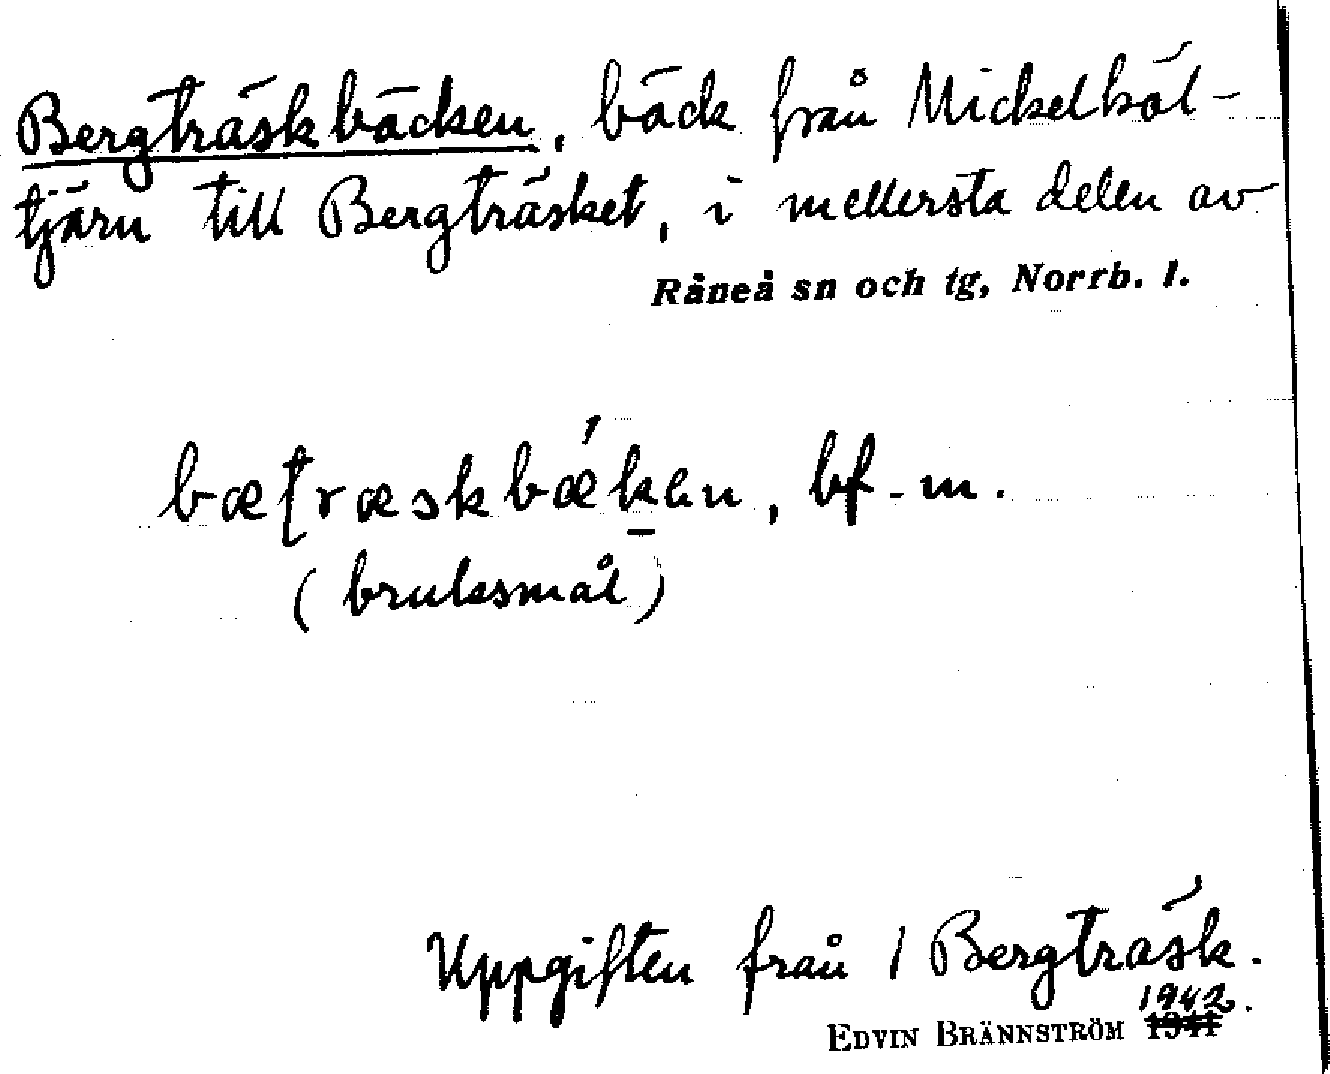 Bergträskbäcken, bäck från Mickelhöl-
tjärn till Bergträsket, i mellersta delen av
Råneå sn och tg, Norrb. l.
bæʈræskbǽk̠en, bf. m.
(bruksmål)
Uppgiften från 1 Bergträsk.
1942.
EDVIN BRÄNNSTRÖM 1941